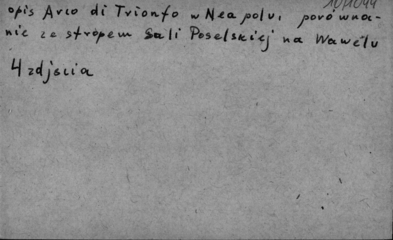 opis Arco di Trionfo w Neapolu, porówna-
nie ze stropem Sali Poselskiej na Wawelu
4 zdjęcia